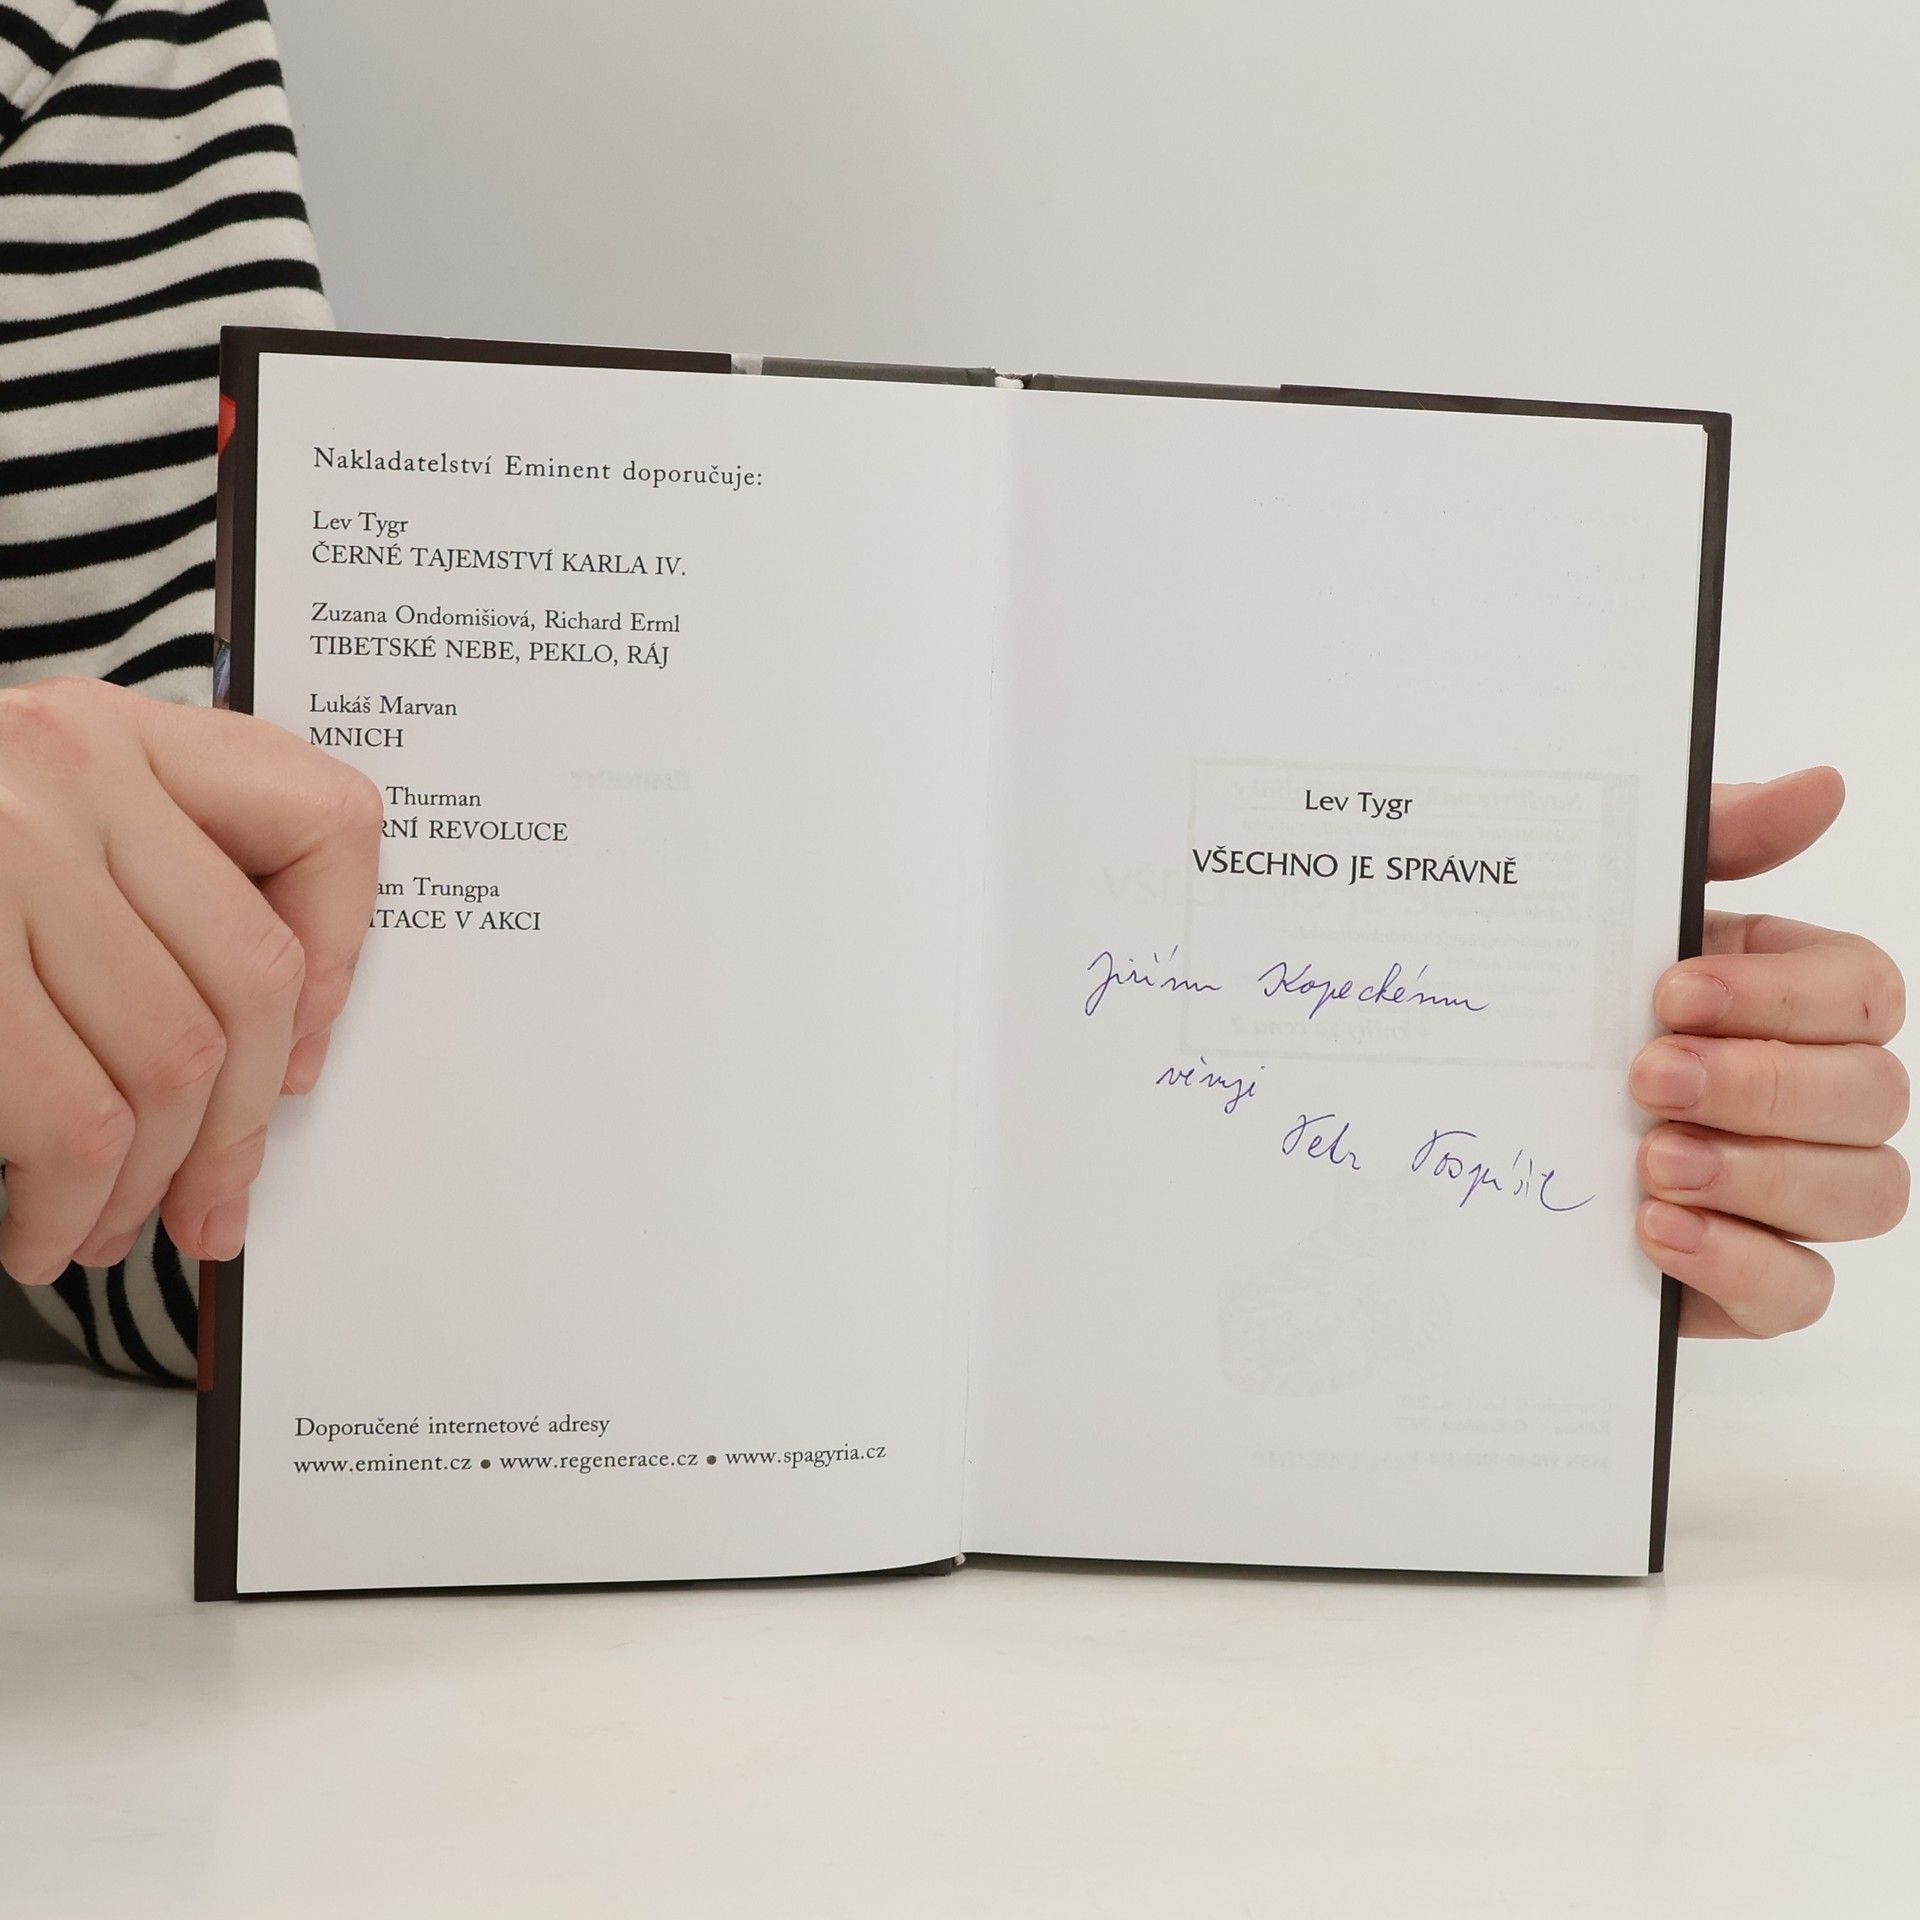 Nakladatelství Eminent doporučuje:
Lev Tygr
ČERNÉ TAJEMSTVÍ KARLA IV.
Zuzana Ondomišiová, Richard Erml
TIBETSKÉ NEBE, PEKLO, RÁJ
Lukáš Marvan
MNICH
Thurman
RNÍ REVOLUCE
am Trungpa
ITACE V AKCI
Doporučené internetové adresy
www.eminent.cz • www.regenerace.cz • www.spagyria.cz
Lev Tygr
VŠECHNO JE SPRÁVNĚ
Jiřímu Kopeckému
věnuji
Petr Pospíšil